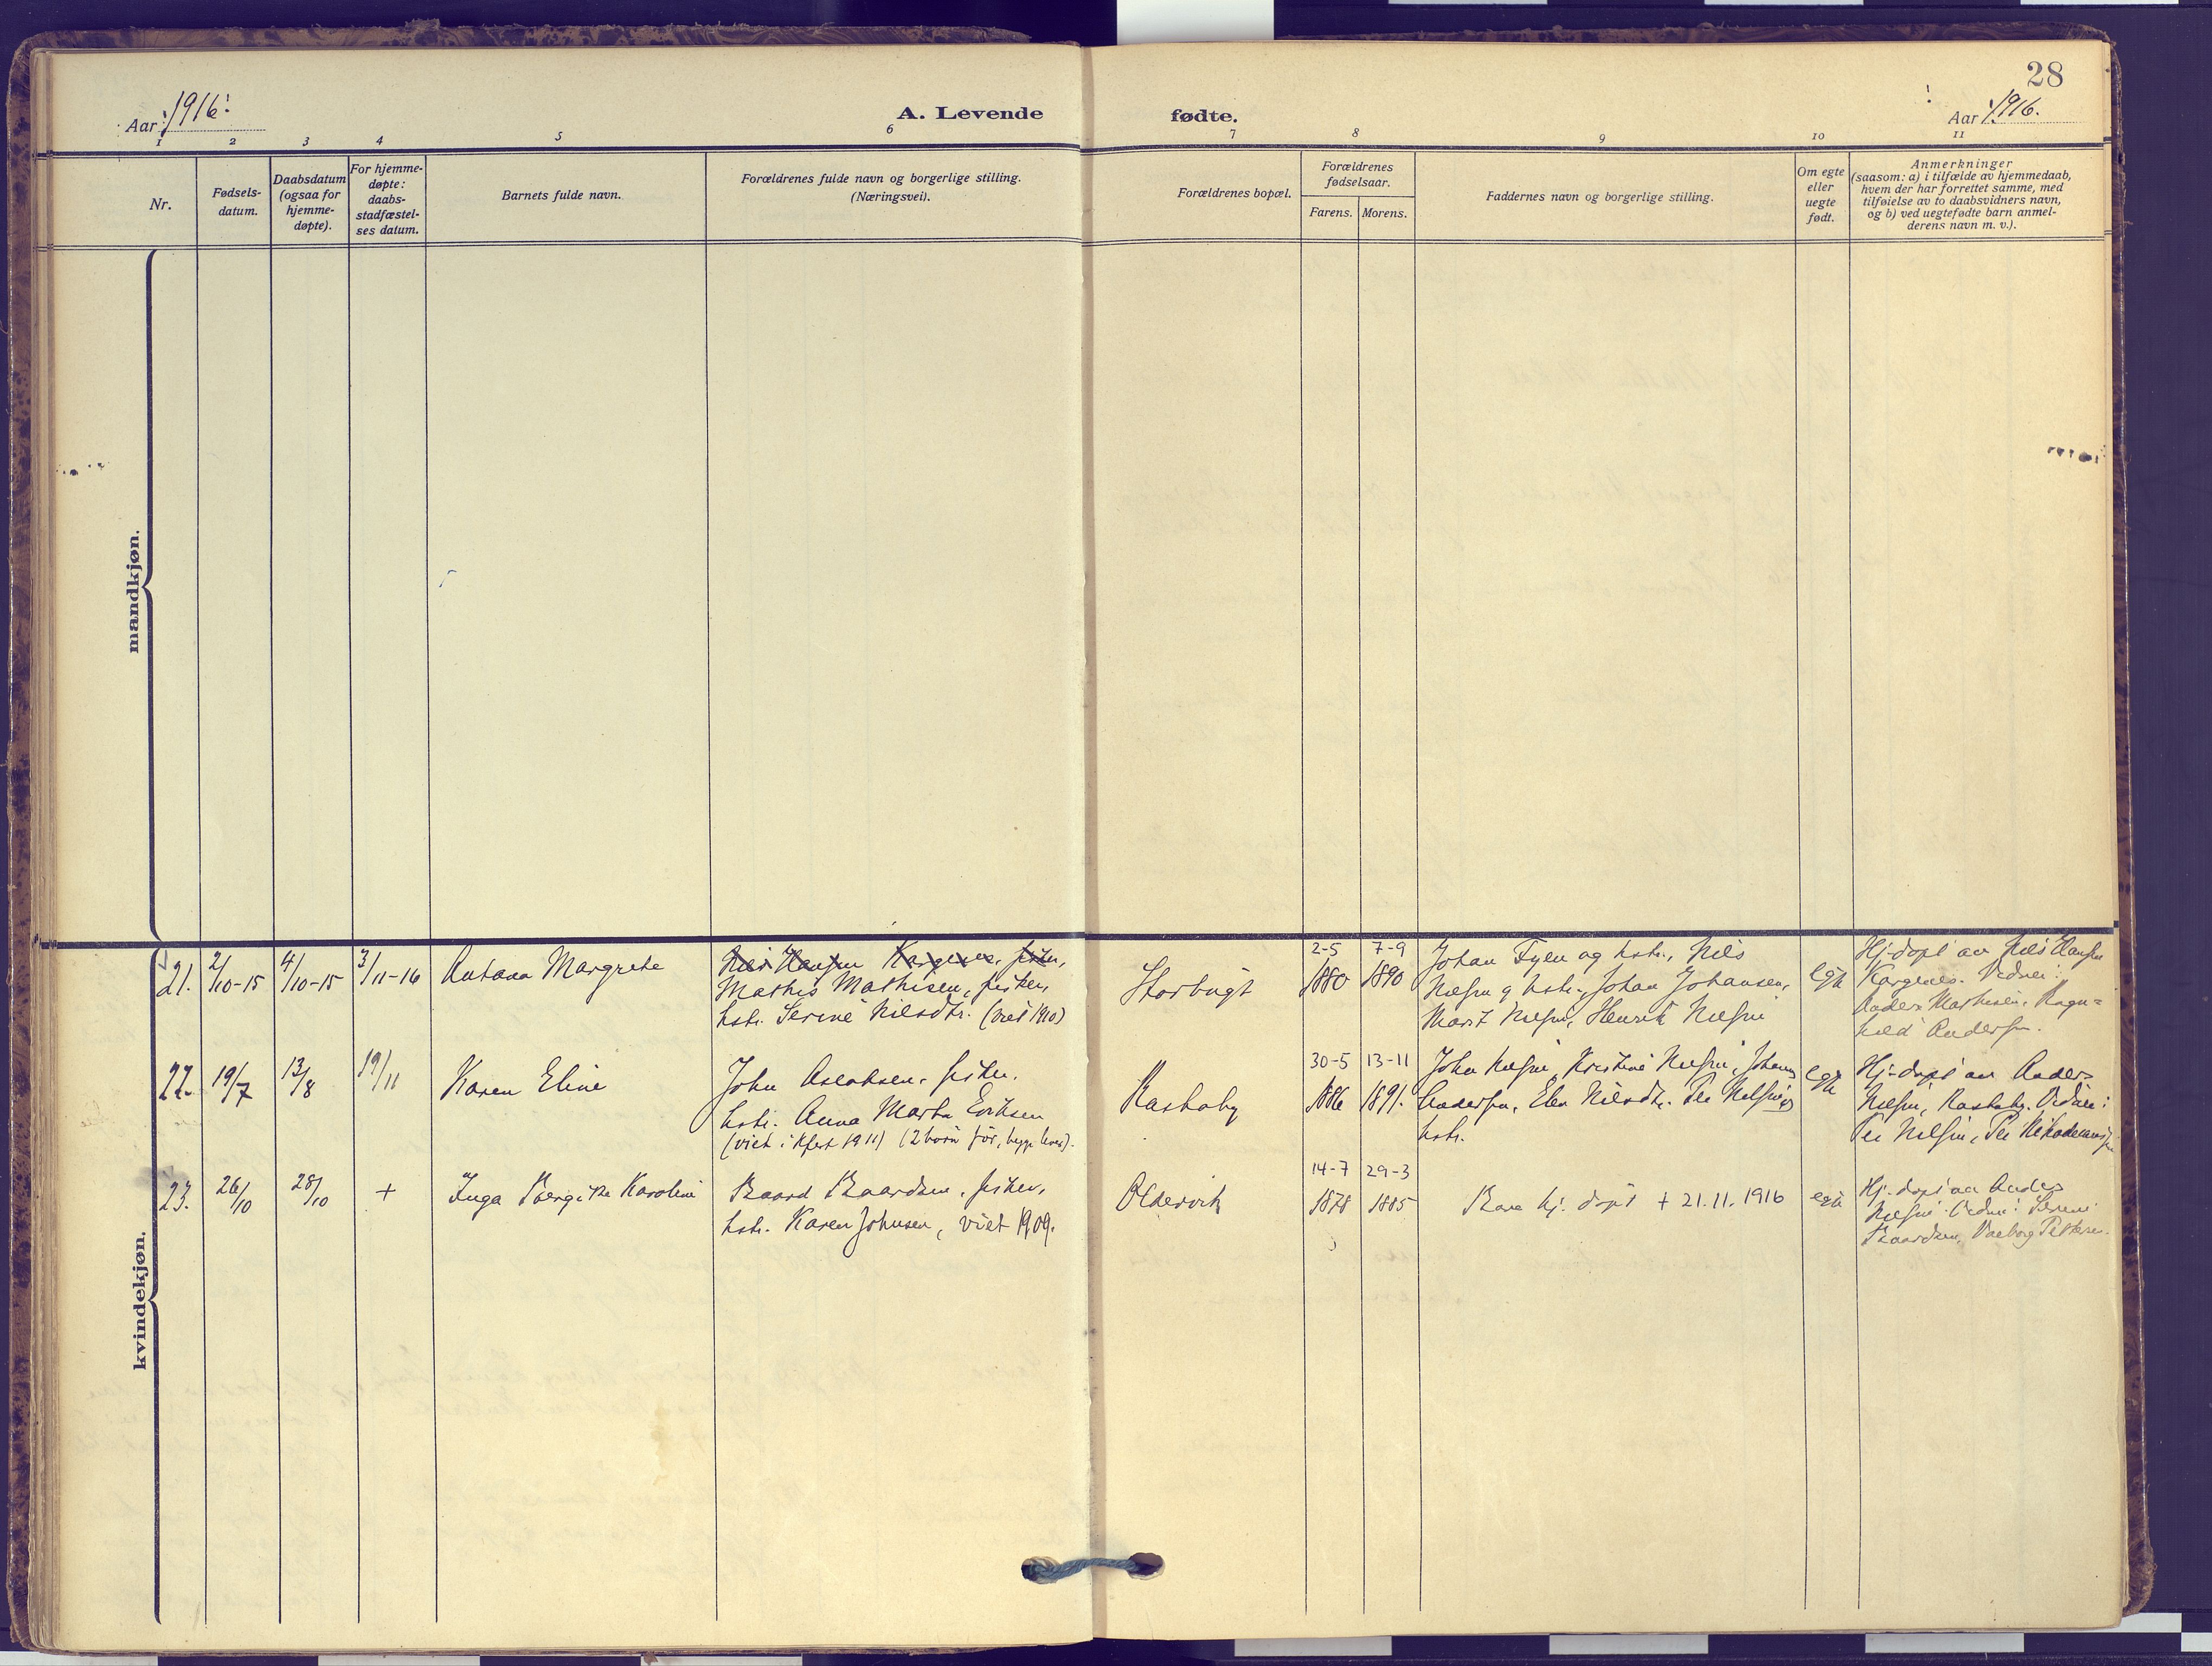 28
Aar 1916.
A. Levende
fødte.
Aar 1916.
1 2 3 4 5 6 7 8 9 10 11
Nr.
Fødsels-
datum.
Daabsdatum
(ogsaa for
hjemme-
døpte).
For hjemme-
døpte:
daabs-
stadfæstel-
ses datum.
Barnets fulde navn.
Forældrenes fulde navn og borgerlige stilling.
(Næringsvei).
Forældrenes bopæl.
Forældrenes
fødselsaar.
Farens. Morens.
Faddernes navn og borgerlige stilling.
Om egte
eller
uegte
født.
Anmerkninger
(saasom: a) i tilfælde av hjemmedaab,
hvem der har forrettet samme, med
tilføielse av to daabsvidners navn,
og b) ved uegtefødte barn anmel-
derens navn m. v.).
mandkjøn.
kvindekjøn.
21.
2/10-15
4/10-15
3/11-16
Antana Margrete
Nils Hansen Kargenes, fisker,
Mathis Mathisen, fisker,
hstr. Serine Nilsdtr. (viet 1910)
Storbugt
2-5
1880
7-9
1890
Johan Fylen og hstr., Nils
Nilsen og hstr., Johan Johansen,
Marit Nilsen, Henrik Nilsen
egte
Hj-døpt av Nils Hansen
Kargenes. Vidner:
Anders Mathisen, Ragn=
hild Andersen.
22.
19/7
13/8
19/11
Karen Eline
John Aslaksen, fisker,
hstr. Anna Marta Eriksen
(viet i Kfest 1911) (2 børn før, begge lever).
30-5
1886
13-11
1891.
John Nilsen, Kristine Nilsen, Johan
Andersen, Elen Nilsdtr. Per Nilsen og
hstr.
egte
Hj-døpt av Anders
Nilsen, Vidner:
Per Nilsen, Per
23.
26/10
28/10
+
Inga Bergitte Karoline
Baard Baardsen, fisker,
hstr. Karen Johnsen, viet 1909.
Oldervik
14-7
1878
29-3
1885
Bare hj. døpt + 21.11.1916
egte
Hj. døpt av Anders
Nilsen. Vidner: Serine
Baardsen, Valborg Pettersen.